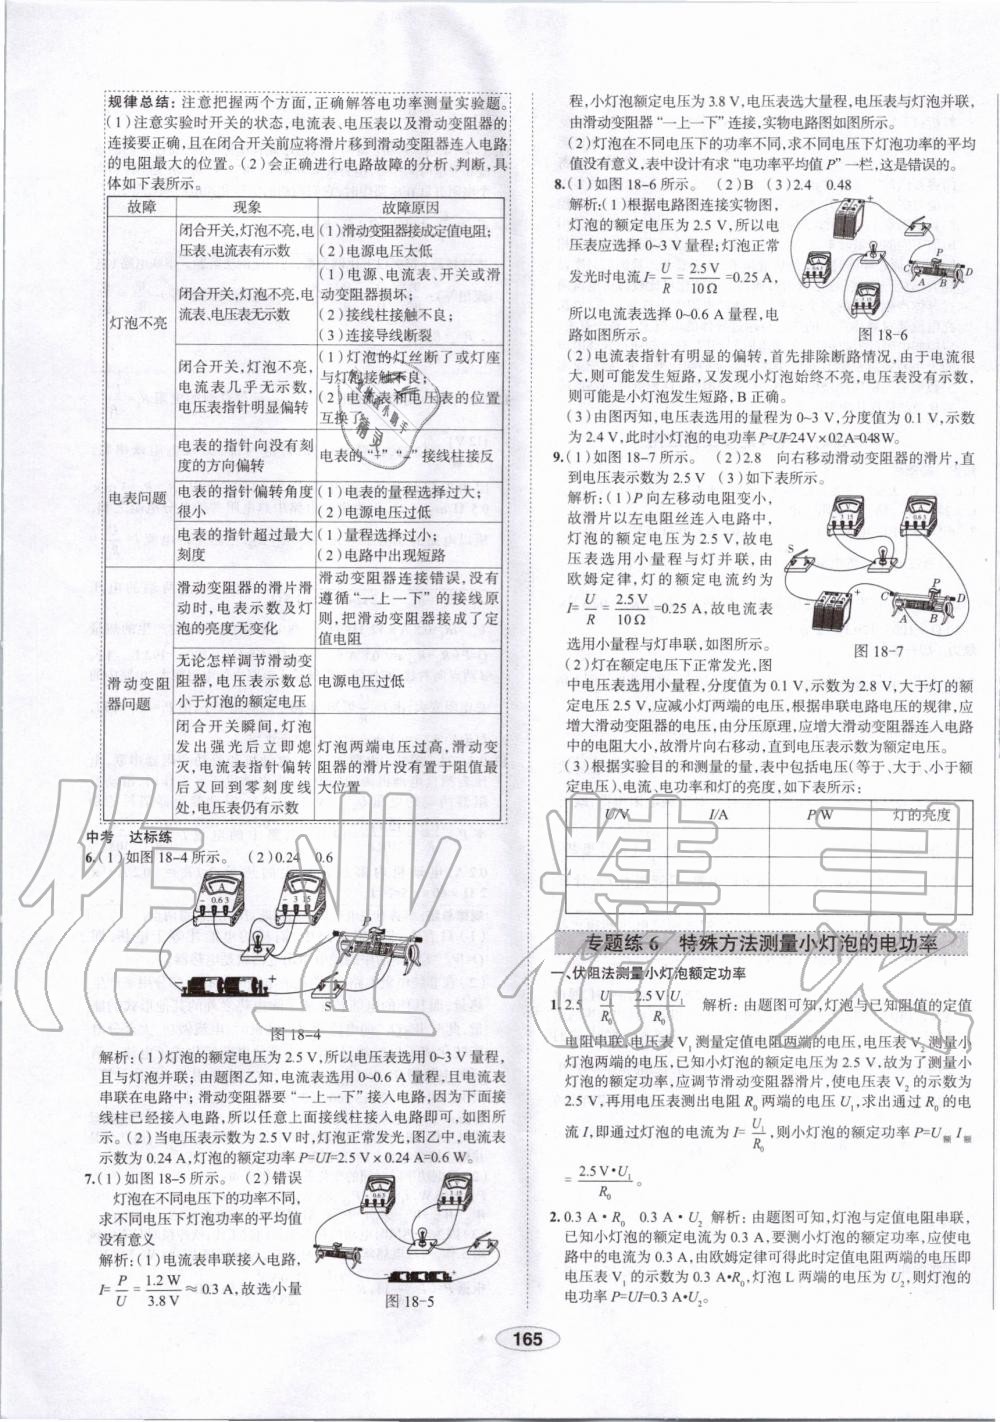 规律总结:注意把握两个方面,正确解答电功率测量实验题。
(1)注意实验时开关的状态,电流表、电压表以及滑动变阻器的
连接要正确,且在闭合开关前应将滑片移到滑动变阻器连入电路
的电阻最大的位置。(2)会正确进行电路故障的分析、判断,具
体如下表所示。
故障 现象 故障原因
灯泡不亮
闭合开关,灯泡不亮,电
压表、电流表有示数
(1)滑动变阻器接成定值电阻;
(2)电源电压太低
闭合开关,灯泡不亮,电
流表、电压表无示数
(1)电源、电流表、开关或滑
动变阻器损坏;
(2)接线柱接触不良;
(3)连接导线断裂
闭合开关,灯泡不亮,
电流表几乎无示数,
电压表指针明显偏转
(1)灯泡的灯丝断了或灯座
与灯泡接触不良;
(2)电流表和电压表的位置
互换了
电表问题
电表的指针向没有刻
度的方向偏转
电表的“+”“-”接线柱接反
电表的指针偏转角度
很小
(1)电表的量程选择过大;
(2)电源电压过低
电表的指针超过最大
刻度
(1)量程选择过小;
(2)电路中出现短路
滑动变阻
器问题
滑动变阻器的滑片滑
动时,电表示数及灯
泡的亮度无变化
滑动变阻器连接错误,没有
遵循“一上一下”的接线原
则,把滑动变阻器接成了定
值电阻
无论怎样调节滑动变
阻器,电压表示数总
小于灯泡的额定电压
电源电压过低
闭合开关瞬间,灯泡
发出强光后立即熄
灭,电流表指针偏转
后又回到零刻度线
处,电压表仍有示数
灯泡两端电压过高,滑动变
阻器的滑片没有置于阻值最
大位置
中考 达标练
6.(1)如图18-4所示。 (2)0.24 0.6
图18-4
解析:(1)灯泡的额定电压为2.5 V,所以电压表选用0~3 V量程,
且与灯泡并联;由题图乙知,电流表选用0~0.6 A量程,且电流表
串联在电路中;滑动变阻器要“一上一下”接入电路,因为下面接
线柱已经接入电路,所以任意上面接线柱接入电路即可,如图所
示。(2)当电压表示数为2.5 V时,灯泡正常发光,图乙中,电流表
示数为0.24 A,灯泡的额定功率P=UI=2.5 V×0.24 A=0.6 W。
7.(1)如图18-5所示。 (2)错误
灯泡在不同电压下的功率不同,
求不同电压下灯泡功率的平均值
没有意义
解析:(1)电流表串联接入电路,
I=P/U=1.2 W/3.8 V≈0.3 A,故选小量
图18-5
程,小灯泡额定电压为3.8 V,电压表选大量程,电压表与灯泡并联,
由滑动变阻器“一上一下”连接,实物电路图如图所示。
(2)灯泡在不同电压下的功率不同,求不同电压下灯泡功率的平均
值没有意义,表中设计有求“电功率平均值P”一栏,这是错误的。
8.(1)如图18-6所示。 (2)B (3)2.4 0.48
解析:(1)根据电路图连接实物图,
灯泡的额定电压为2.5 V,所以电
压表应选择0~3 V量程;灯泡正常
发光时电流I=U/R=2.5 V/10 Ω=0.25 A,
所以电流表选择0~0.6 A量程,电
路如图所示。
图18-6
(2)电流表指针有明显的偏转,首先排除断路情况,由于电流很
大,则可能发生短路,又发现小灯泡始终不亮,电压表没有示数,
则可能是小灯泡发生短路,B正确。
(3)由图丙知,电压表选用的量程为0~3 V,分度值为0.1 V,示数
为2.4 V,此时小灯泡的电功率P=UI=2.4 V×0.2 A=0.48 W。
9.(1)如图18-7所示。 (2)2.8 向右移动滑动变阻器的滑片,直
到电压表示数为2.5 V (3)如下表所示。
解析:(1)P向左移动电阻变小,
故滑片以左电阻丝连入电路中,
灯泡的额定电压为2.5 V,故电
压表选用小量程与灯并联,由
欧姆定律,灯的额定电流约为
I=U/R=2.5 V/10 Ω=0.25 A,故电流表
选用小量程与灯串联,如图所示。
图18-7
(2)灯在额定电压下正常发光,图
中电压表选用小量程,分度值为0.1 V,示数为2.8 V,大于灯的额
定电压2.5 V,应减小灯两端的电压,根据串联电路电压的规律,应
增大滑动变阻器的电压,由分压原理,应增大滑动变阻器连入电路
中的电阻,故滑片向右移动,直到电压表示数为额定电压。
(3)根据实验目的和测量的量,表中包括电压(等于、大于、小于额
定电压)、电流、电功率和灯的亮度,如下表所示:
U/V I/A P/W 灯的亮度
专题练6 特殊方法测量小灯泡的电功率
一、伏阻法测量小灯泡额定功率
1.2.5 U₁/R₀ 2.5 V U₁/R₀ 解析:由题图可知,灯泡与已知阻值的定值
电阻串联,电压表V₁测量定值电阻两端的电压,电压表V₂测量小
灯泡两端的电压,已知小灯泡的额定电压为2.5 V,故为了测量小
灯泡的额定功率,应调节滑动变阻器滑片,使电压表V₂的示数为
2.5 V,再用电压表测出电阻R₀两端的电压U₁,求出通过R₀的电
流I,即通过灯泡的电流为I=U₁/R₀,则小灯泡的额定功率P=U额I额
=2.5 V·U₁/R₀。
2.0.3 A·R₀ 0.3 A·U₂ 解析:由题图可知,灯泡与定值电阻串联,
已知小灯泡的额定电流为0.3 A,要测小灯泡的额定功率,应使电
路中的电流为0.3 A,由欧姆定律可得此时定值电阻两端的电压即
电压表V₁的示数为0.3 A·R₀,灯泡L两端的电压为U₂,则灯泡的
电功率P=UI=0.3 A·U₂。
165